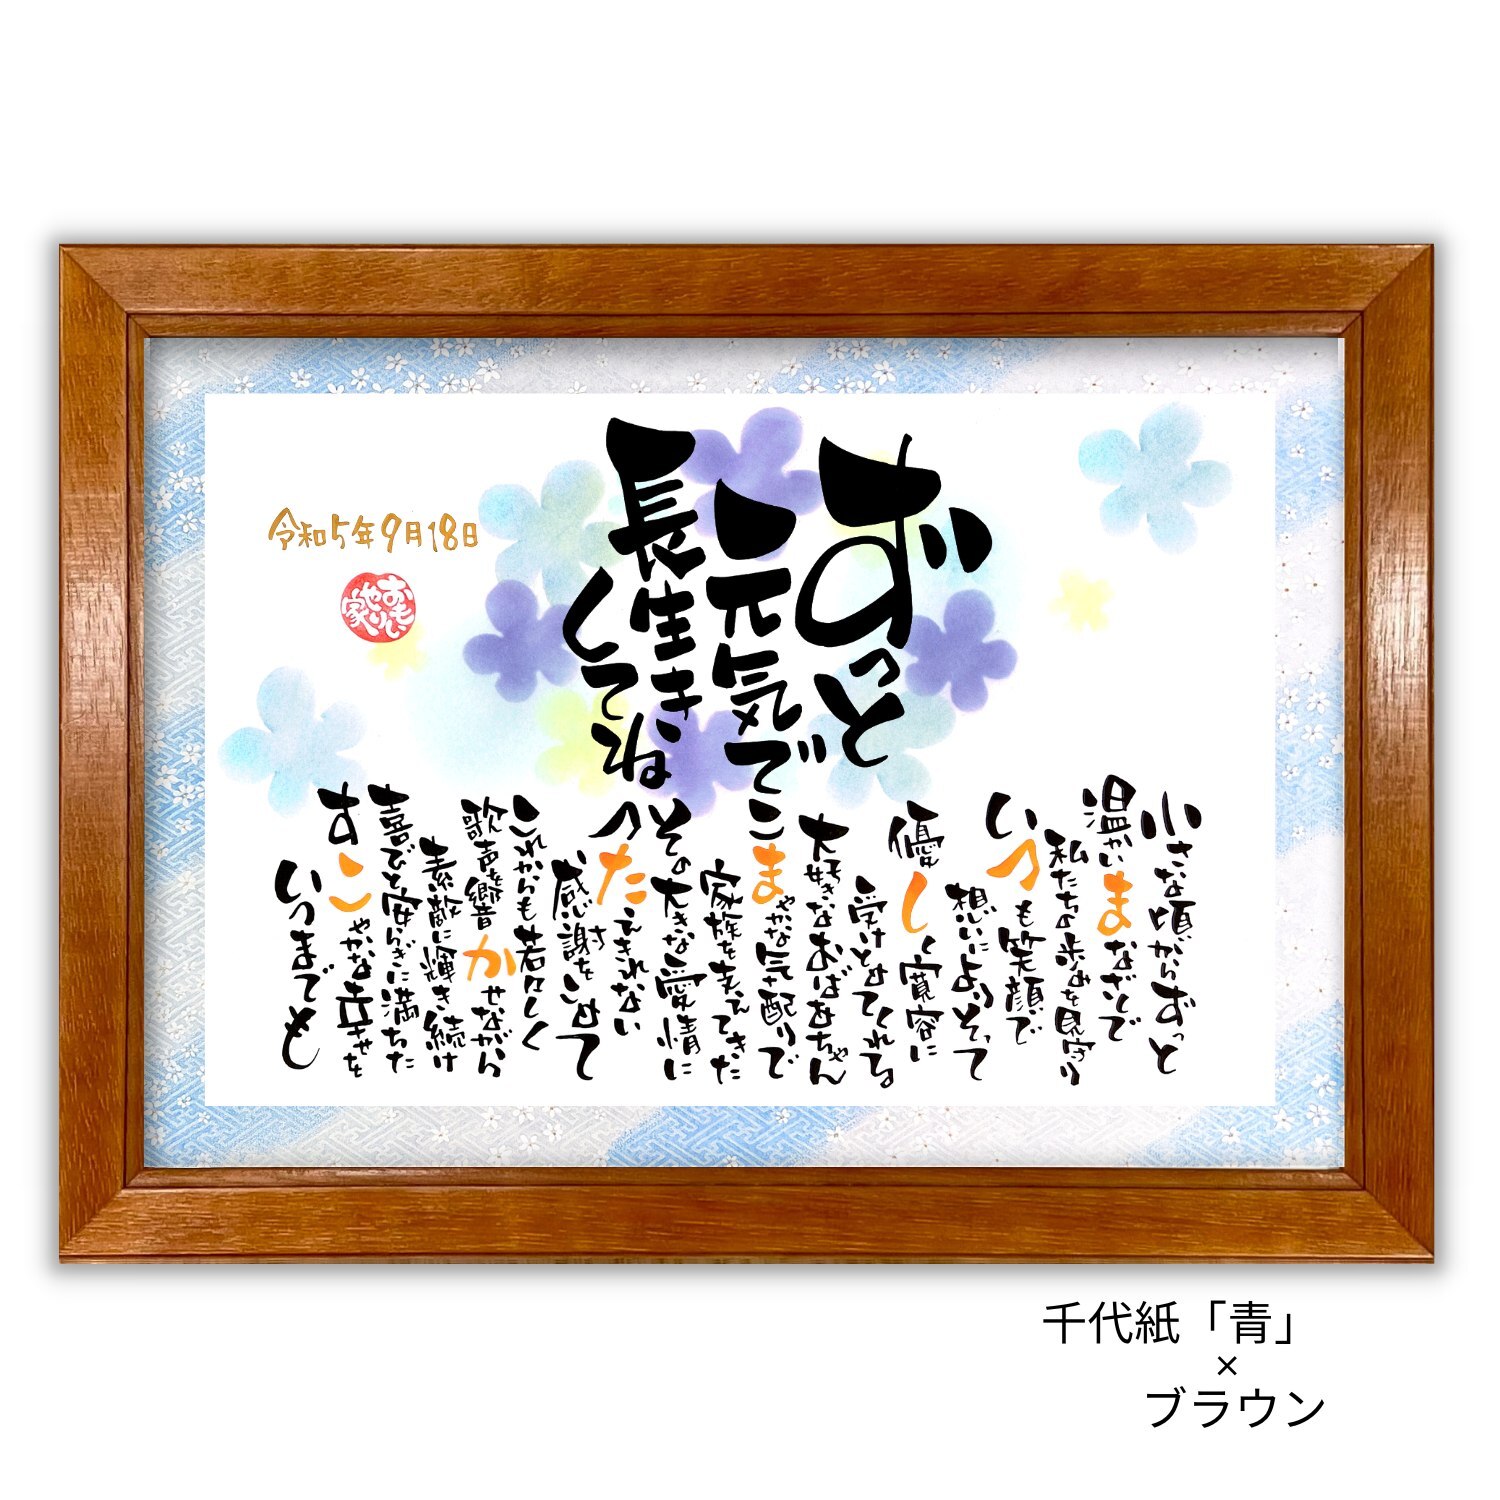 ずっと
元気で
長生き
してね
令和5年9月18日
おもいやり家
小さな頃からずっと
温かいまなざしで
私たちの歩みを見守り
いつも笑顔で
想いによりそって
優しく寛容に
受けとめてくれる
大好きなおばあちゃん
こまやかな気配りで
家族を支えてきた
その大きな愛情に
つたえきれない
感謝をこめて
これからも若々しく
歌声を響かせながら
素敵に輝き続け
喜びと安らぎに満ちた
すこやかな幸せを
いつまでも
千代紙「青」
×
ブラウン